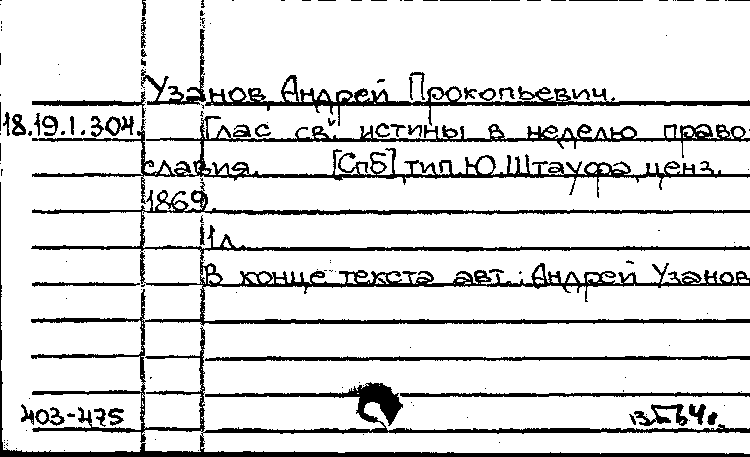 Узанов, Андрей Прокопьевич.
18.19.1.304. Глас св. истины в неделю право-
славия. [Спб], тип. Ю. Штауфа, ценз.
1869.
1л.
В конце текста авт.: Андрей Узанов
403-475